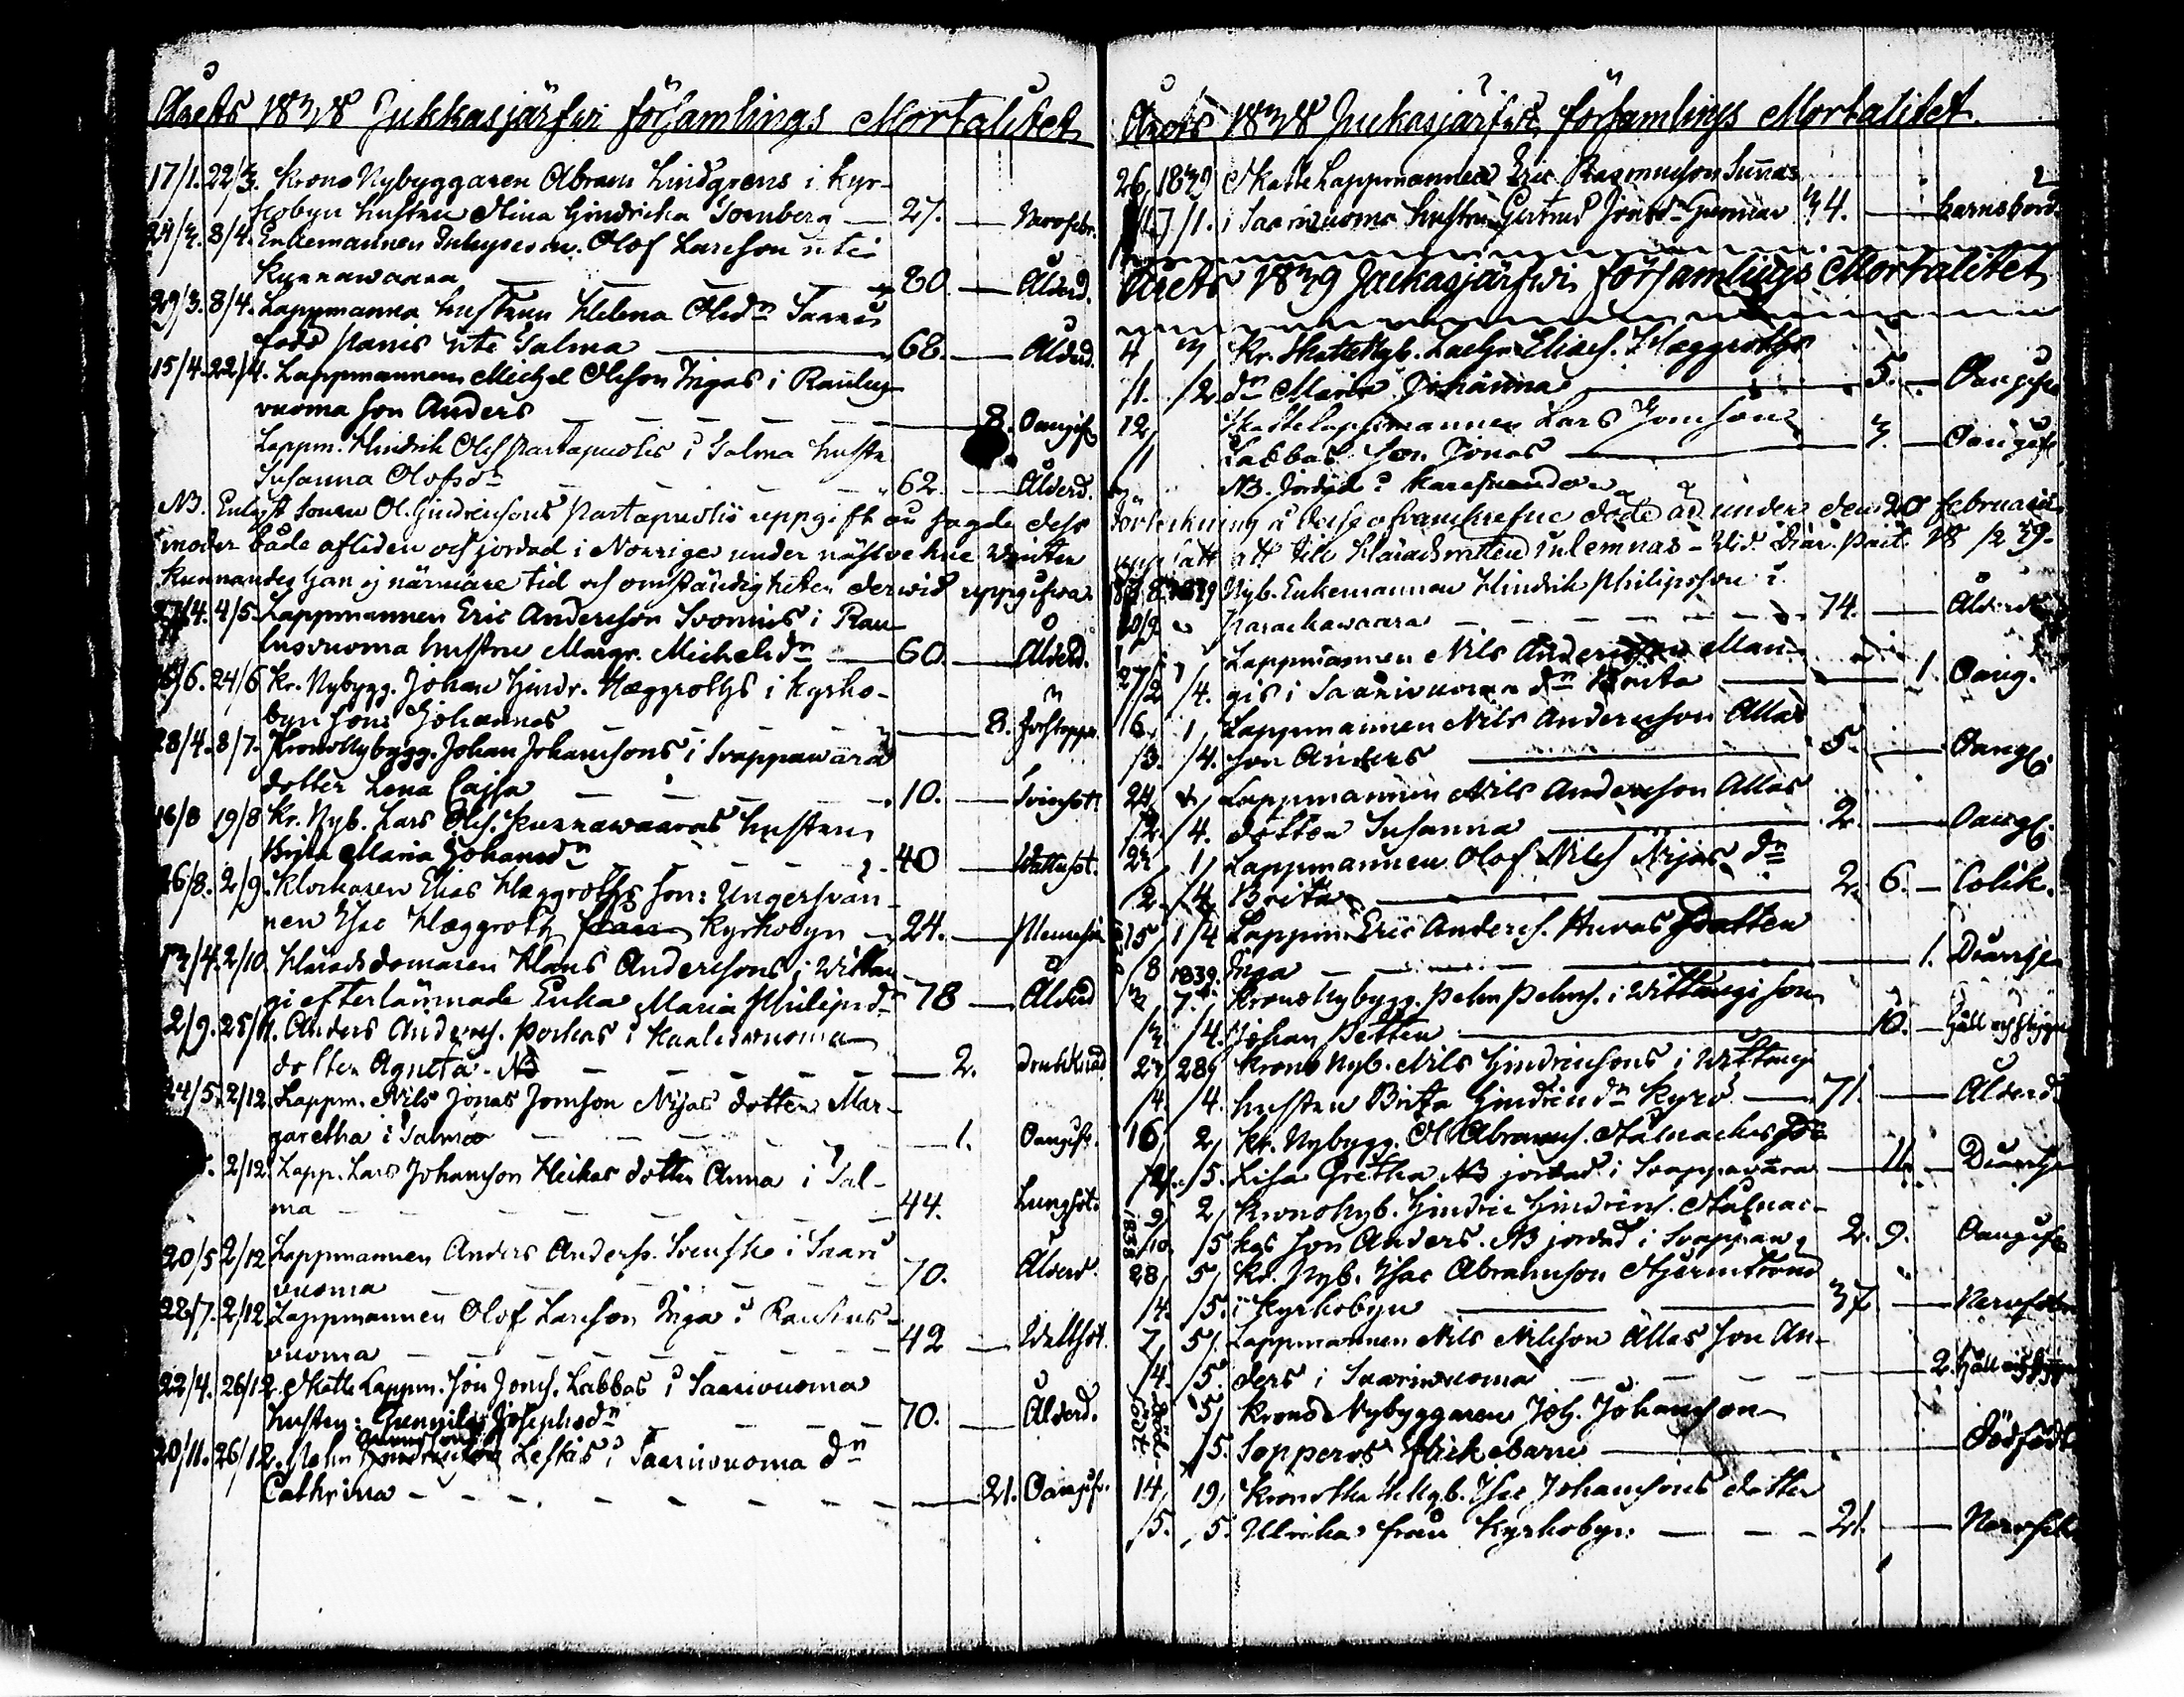 Årets 1838 Jukkasjärfwi församlings Mortalitet
17/1. 22/3. Krono Nybyggaren Abram Lindgrens i Kyr-
kobyn hustru Stina Hindrika Tornberg — 27. — Nervfeber.
24/3. 8/4. Enkemannen Inhyses m. Olof Larsson uti
Kurrawaara — — — 80. — Ålderd.
29/3. 8/4. Lappmanna hustrun Helena Olsdn
född Panis uti Talma — 68. — Ålderd.
15/4. 22/4. Lappmannen Michel Olsson Ingas i Rautus
vuoma son Anders — — — 8. Oangif.
Lappm. Hindrik Ols. Partapuolis i Talma hustru
Susanna Olofsdn — — — 62. — Ålderd.
NB. Enligt sonen Ol. Hindrichsons Partapuolis uppgift är sagde dess
moder både afliden och jordad i Norrige under nästvekne Winter
kunnandes han ej närmare tid och omständigheten derwid uppgifwa.
4/5. Lappmannen Eric Andersson Svonnis i Rau
tusvuoma hustru Margr. Michelsdn — 60. — Ålderd.
24/6 Kr. Nybygg. Johan Hindr. Hæggroths i Kyrko-
byn son Johannes — — — 8.
28/4. 8/7. Krono Nybygg. Johan Johanssons i Svappawara
dotter Lena Cajsa — — — 10. —
16/8 19/8 Kr. Nyb. Lars Ols. Kurrawaaras hustru
Brita Maria Johansdn — — 40 — Wattusot.
26/8. 2/9. Klockaren Elias Hæggroths son: Ungersven-
nen Isac Hæggroth från Kyrkobyn — 24. —
2/10. Häradsdomaren Klaus Anderssons i Wittan
gi efterlämnade Enka Maria Philipsdn 78 — Ålderd
2/9. 25/11. Anders Anders. Porkas i Kaalasvuoma
dotter Agneta. NB — — — 2.
24/5. 2/12. Lappm. Nils Jonas Jonsson Nijas dotter Mar-
garetha i Talma — — — 1. Oangif.
2/12. Lapp. Lars Johansson Heikas dotter Anna i Tal-
ma — — — 44. Lungsot.
20/5 2/12 Lappmannen Anders Anders. Svenske i Saari
vuoma 70. Ålderd.
22/7. 2/12. Lappmannen Olof Larsson Inga i Rautus-
vuoma — — — 42 — Wattsot.
22/4. 26/12. Skatte Lappm. Jon Jons. Labbas i Saarivuoma
hustru: Gunnila Josephsdn — — 70. — Ålderd.
20/11. 26/12. Leskis i Saarivuoma dn
Cathrina — — — 21. Oangif.
Årets 1838 Juckasjärfwi församlings Mortalitet.
26 1839 Skatte Lappmannen Eric Rasmusson Sunnas
17/1. i Saarivuoma hustru Gertrud Jonsdn Gunnar 34. — barnsbörd.
Årets 1839 Juckasjärfwi församlings Mortalitet
4 3 Kr. Skatte Nyb. Zachr. Elias. Hæggroths
/1. /2. dn Maria Johanna — 5. — Oangifu
12 Skatte Lappmannen Lars Jonsson
/1 Labbas son Jonas — 3. — Oangif
NB. Jordad i Karesuando
Förteckning å dessa ofvanskrefne döde är under den 20 februarii
uppsatt att till Häradsrätten inlemnas
1839 Nyb. Enkemannen Hindrik Philipsson i
Parackawaara — — — 74. — Ålderd
Lappmannen Nils Andersson Man-
27/2 /4. gis i Saarivuoma dn Brita — 1. Oang.
6 1 Lappmannen Nils Andersson Allas
/3. /4. son Anders — 5. — Oangf.
24 1 Lappmannen Nils Andersson Allas
/2. /4. dotter Susanna — 2. — Oangf.
1 Lappmannen Olof Nils Nijas dn
/2. /4. Brita — 2. 6. — Colik.
15 1/4 Lappm. Eric Anders. Huvas Dotter
/8 1839. Inga — — — 1. Diarrhea
7. Krono Nybygg. Pehr Pehrs. i Wittangi son
/3. /4. Johan Petter — 10. — Håll och styng
28 Krono Nyb. Nils Hindrichsons i Wittangi
/4. /4. hustru Brita Hindricsdn Kyrö — 71. — Ålderd
16 2 Kr. Nybygg. Ol. Abrams. Stålnackes Dr
/4. /5. Lisa Gretha NB jordad i Svappavara — 11. — Diarrhe
1838 9 2 Krono Nyb. Hindric Hindrics. Stålnac-
/10. /5 kes son Anders. NB jordad i Svappaw. 2. 9. Oangif
28 5 Kr. Nyb. Isac Abramsson Stjernström
/4. /5. i Kyrkobyn — 37. — Nervfeber
7 5 Lappmannen Nils Nilsson Allas son An-
/4. /5. ders i Saarivuoma — — — 2. Håll och styng
5 Krono Nybyggaren Joh. Johansson
/5. Sopperos flickebarn — Dödfödt
14 19 Isac Johanssons dotter
/5. /5. Ulrika från Kyrkobyn — — — 21. — Nervfeb